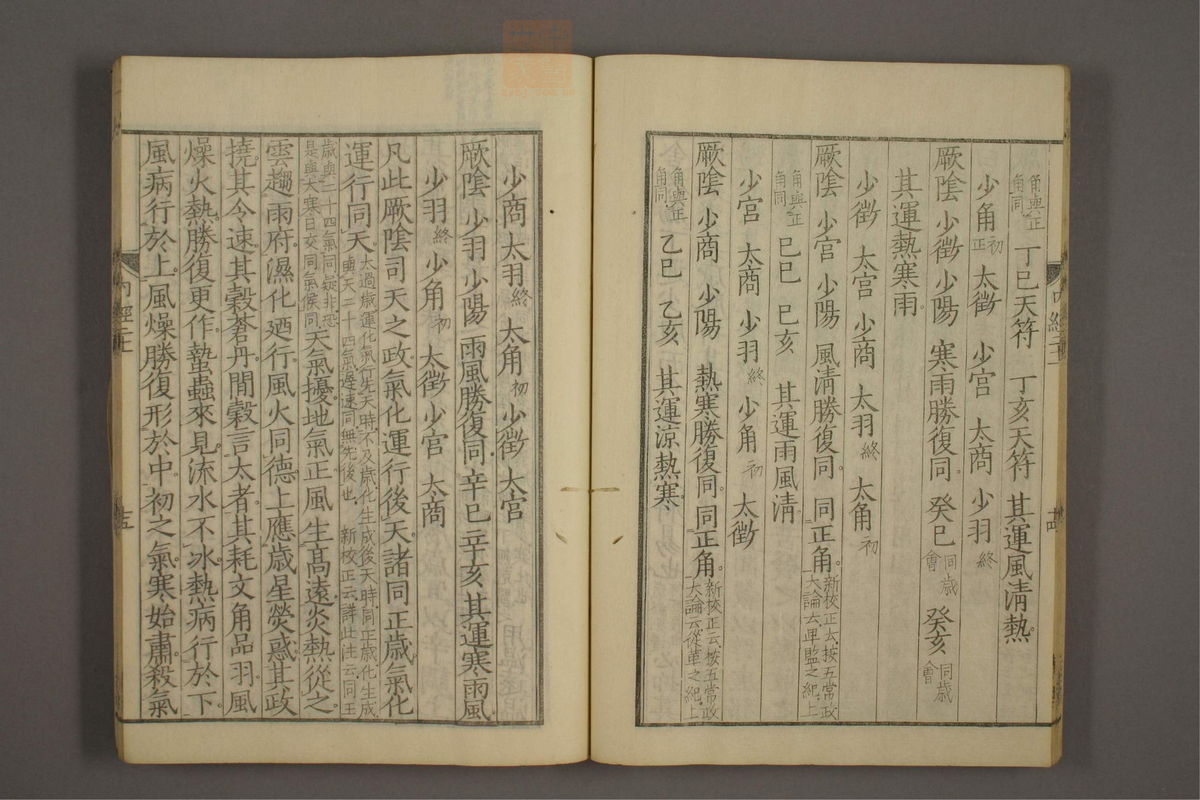 角與正角同 丁巳天符 丁亥天符 其運風清熱
少角初正 太徵 少宮 太商 少羽終
厥陰 少徵 少陽 寒雨勝復同 癸巳同歲會 癸亥同歲會
其運熱寒雨
少徵 太宮 少商 太羽終 太角初
厥陰 少宮 少陽 風清勝復同 同正角新校正云按五常政大論云卑監之紀上
角與正角同 己巳 己亥 其運雨風清
少宮 太商 少羽終 少角初 太徵
厥陰 少商 少陽 熱寒勝復同 同正角新校正云按五常政大論云從革之紀上
角與正角同 乙巳 乙亥 其運涼熱寒
少商 太羽終 太角初 少徵 太宮
厥陰 少羽 少陽 雨風勝復同 辛巳 辛亥 其運寒雨風
少羽終 少角初 太徵 少宮 太商
凡此厥陰司天之政氣化運行後天諸同正歲氣化
運行同天太過歲運化氣行先天時不及歲化生成後天時同正歲化生成與天二十四氣遲速同無先後也 新校正云詳此注云同正
歲與二十四氣同疑非恐是與大寒日交同氣候同天氣擾地氣正風生高遠炎熱從之
雲趨雨府濕化廼行風火同德上應歲星熒惑其政
撓其令速其穀蒼丹間穀言太者其耗文角品羽風
燥火熱勝復更作蟄蟲來見流水不冰熱病行於下
風病行於上風燥勝復形於中初之氣寒始肅殺氣
內經二十
十四
內經二十
十五